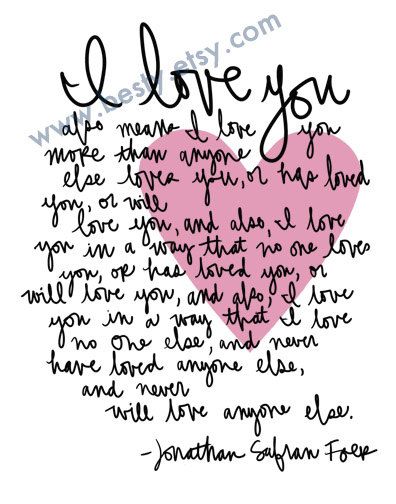 I love you
www.besty.etsy.com
also means I love you
more than anyone
else loves you, or has loved
you, or will
love you, and also, I love
you in a way that no one loves
you, or has loved you, or
will love you, and also, I love
you in a way that I love
no one else, and never
have loved anyone else,
and never
will love anyone else.
-Jonathan Safran Foer